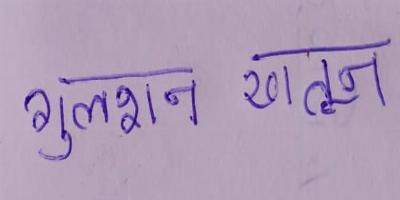 गुलशन खातून